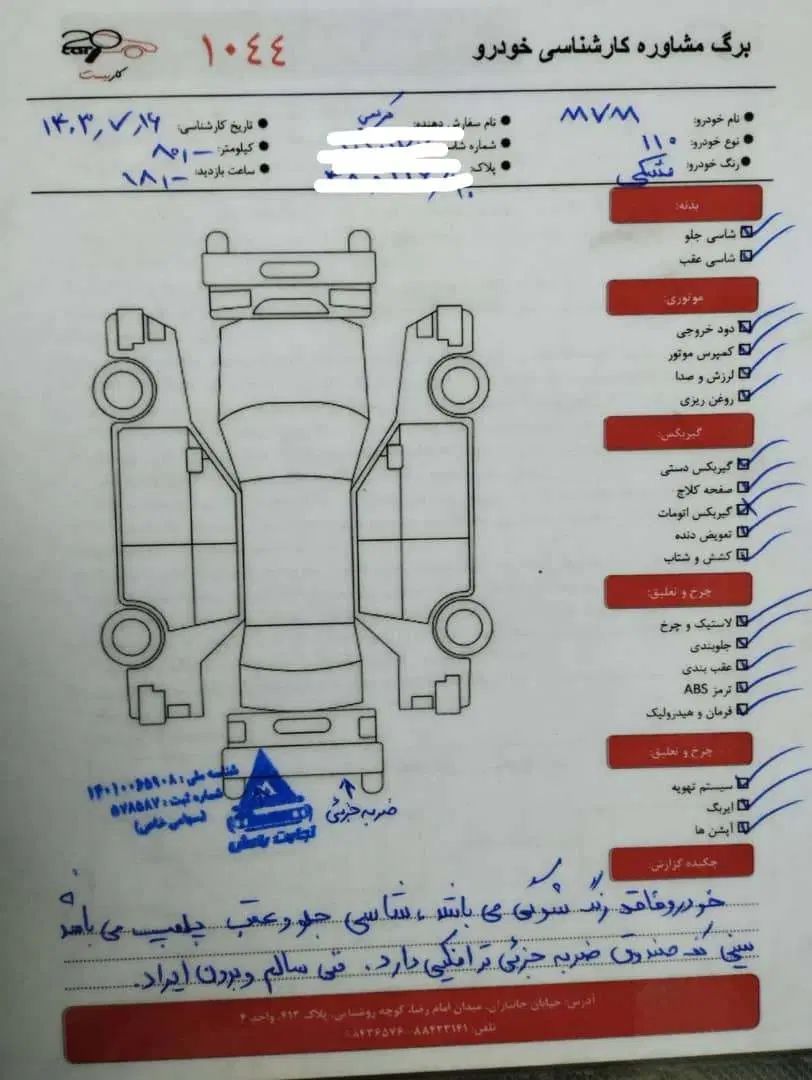 برگ مشاوره کارشناسی خودرو
۱۰۴۴
car
کارنیست
نام خودرو: MVM
نوع خودرو: ۱۱۰
رنگ خودرو: مشکی
نام سفارش دهنده:
شماره شاسی
پلاک:
تاریخ کارشناسی: ۱۴۰۳٫۷٫۱۶
کیلومتر:
ساعت بازدید:
بدنه:
شاسی جلو
شاسی عقب
موتوری:
دود خروجی
کمپرس موتور
لرزش و صدا
روغن ریزی
گیربکس:
گیربکس دستی
صفحه کلاچ
گیربکس اتومات
تعویض دنده
کشش و شتاب
چرخ و تعلیق:
لاستیک و چرخ
جلوبندی
عقب بندی
ترمز ABS
فرمان و هیدرولیک
چرخ و تعلیق:
سیستم تهویه
ایربگ
آپشن ها
شناسه ملی: ۱۴۰۱۰۰۶۵۹۰۸
شماره ثبت: ۵۷۸۵۸۷
(سهامی خاص)
ضربه جزئی
چکیده گزارش:
خودرو فاقد رنگ شدگی می باشد، شاسی جلو و عقب پلمپ می باشد
سینی کف صندوق ضربه جزئی ترافیکی دارد. فنی سالم و بدون ایراد.
آدرس: خیابان جانبازان، میدان امام رضا، کوچه روشنایی، پلاک ۴۱۳، واحد ۴
تلفن: ۸۸۴۲۳۱۴۱ - ۸۸۴۳۶۵۷۶